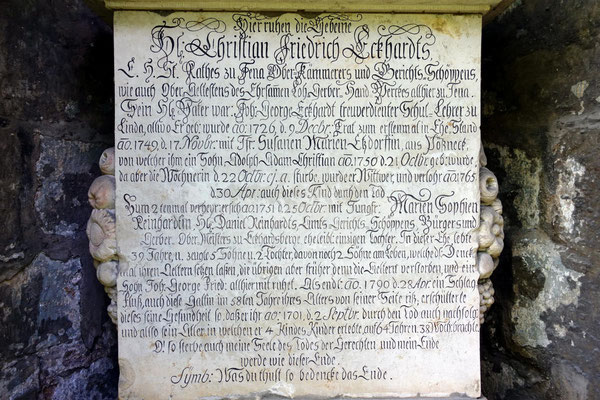 Hier ruhen die Gebeine
Hr. Christian Friedrich Eckhardts,
E. H. St. Rathes zu Jena Ober-Kämmerers und Gerichts Schöppens,
wie auch Ober-Eltestens des Ehrsamen Loh-Gerber Hand Werckes allhier zu Jena.
Sein Hr. Vater war: Joh. George Eckhardt treuverdienter Schul-Lehrer zu
Linda, allwo Er geb. wurde ao: 1726, d. 9 Decbr. Trat zum erstenmal in Ehe Stand
ao. 1749, d. 17 Novbr. mit Jfr. Susanen Marien aus Pösneck
von welcher ihm ein Sohn Adolph Adam Christian ao. 1750 d. 21 Octbr. geb. wurde,
da aber die Wöchnerin d. 22 Octbr. ej. a. starb, wurde er Wittwer und verlohr ao: 1765
d. 30 Apr: auch dieses Kind durch den Tod
Zum 2 tenmal verheyr. er sich ao 1751 d. 25 Octbr. mit Jungfr. Marien Sophien
Reinhardtin Hr. Daniel Reinhardts Gerichts Schöppens, Bürgers und
Gerber Ober Meisters zu Eckhardsberge eheleibl. einzigen Tochter. In dieser Ehe lebte
39 Jahre, u. zeugte 5 Söhne u. 2 Töchter, davon noch 2 Söhne am Leben, welche dDenck
mal ihren Aeltern setzen laßen, die übrigen aber früher denn die Aeltern verstorben, und ein
Sohn Joh. George Fried: allhier mit ruhet. Als endl. ao. 1790 d. 28 Apr. ein Schlag
Fluß, auch diese Gattin im 58 ten Jahre ihres Alters von seiner Seite riß, erschütterte
dieses seine Gesundheit so daß er ihr ao: 1791, d. 2 Septbr. durch den Tod auch nachfolgte
und also sein Alter in welchen er 4 Kindes Kinder erlebte auf 64 Jahren, 38 Woch. brachte.
O! so sterbe auch meine Seele des Todes der Gerechten, und mein Ende
werde wie dieser Ende.
Symb: Was du thust so bedencke das Ende.